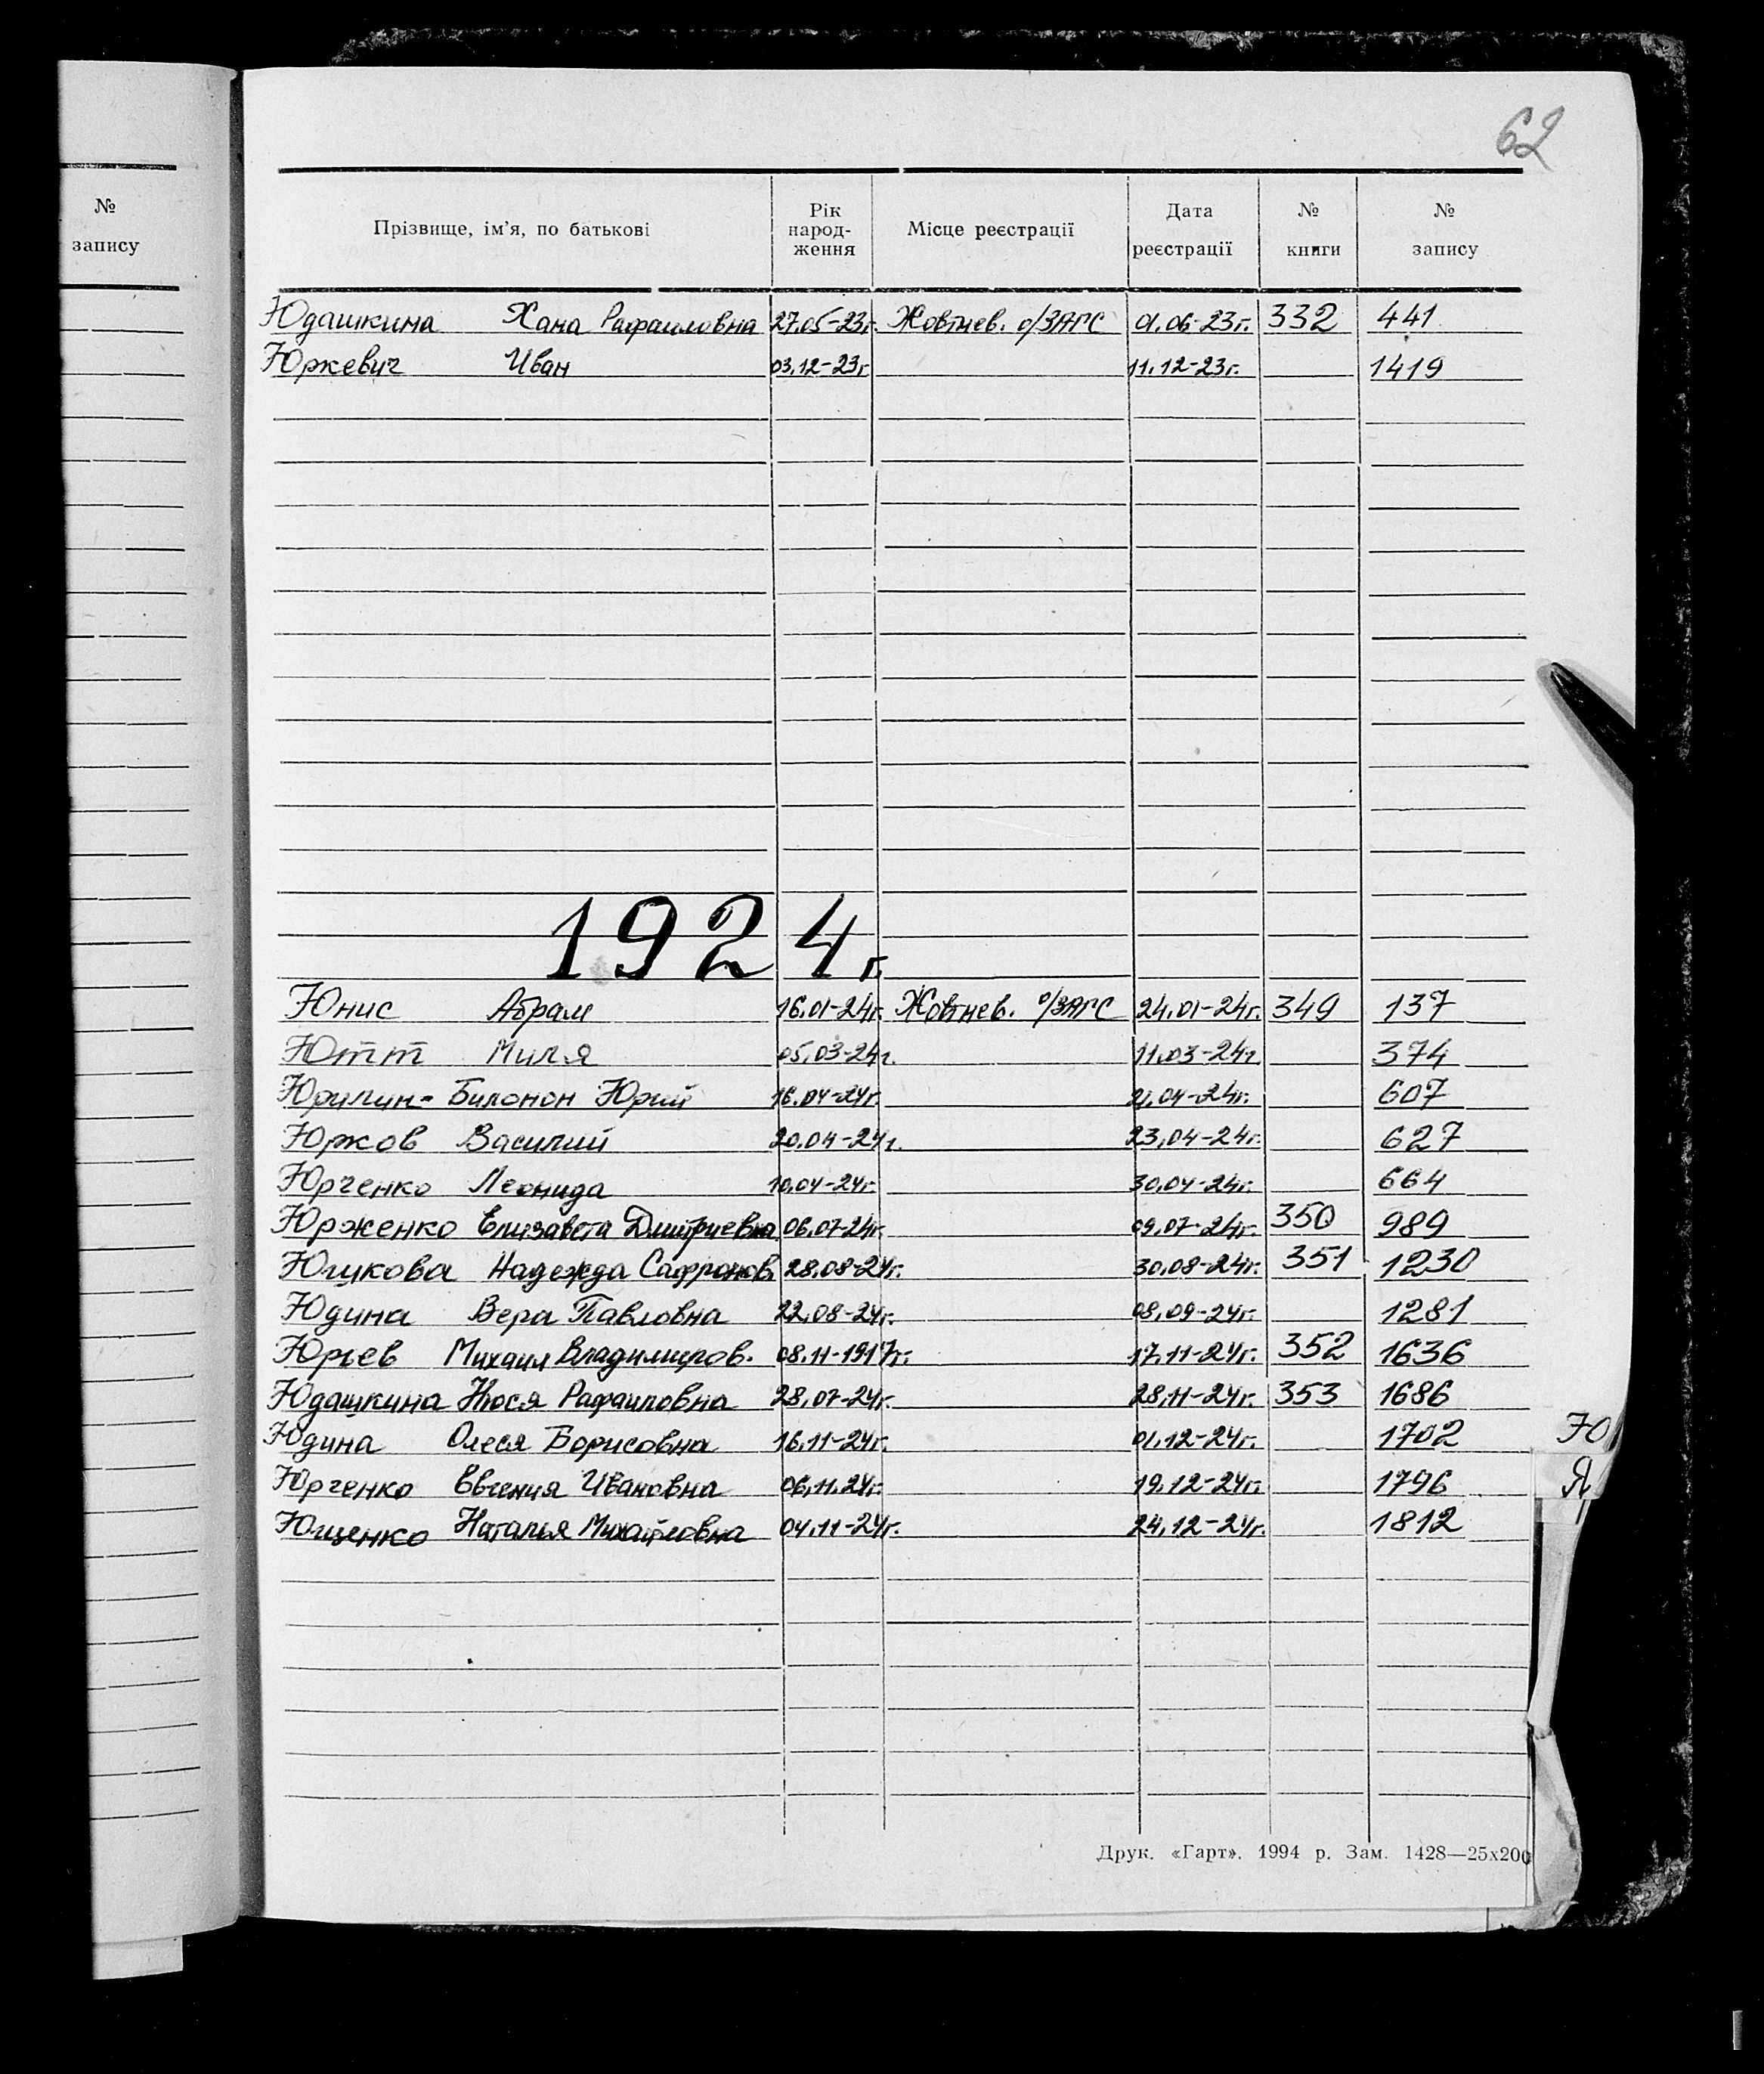 62
№ запису
Прізвище, ім'я, по батькові Рік народ-ження Місце реєстрації Дата реєстрації № книги № запису
Юдашкина Хана Рафаиловна 27.05-23г. Жовтнев. о/ЗАГС 01.06-23г. 332 441
Юркевич Иван 03.12-23г. 11.12-23г. 1419
1924г.
Юнис Абрам 16.01-24г. Жовтнев. о/ЗАГС 24.01-24г. 349 137
Ютт Миля 05.03-24г. 11.03-24г. 374
Юрилин- Билонон Юрий 16.04-24г. 21.04-24г. 607
Юрков Василий 20.04-24г. 23.04-24г. 627
Юрченко Леонида 10.04-24г. 30.04-24г. 664
Юрженко Елизавета Дмитриевна 06.07-24г. 09.07-24г. 350 989
Юшкова Надежда Сафронов. 28.08-24г. 30.08-24г. 351 1230
Юдина Вера Павловна 22.08-24г. 08.09-24г. 1281
Юрьев Михаил Владимиров. 08.11-1917г. 17.11-24г. 352 1636
Юдашкина Нюся Рафаиловна 28.07-24г. 28.11-24г. 353 1686
Юдина Олеся Борисовна 16.11-24г. 01.12-24г. 1702
Ю
Юрченко Евгения Ивановна 06.11.24г. 19.12-24г. 1796
Я
Ющенко Наталья Михайловна 04.11-24г. 24.12-24г. 1812
Друк. «Гарт». 1994 р. Зам. 1428—25х200